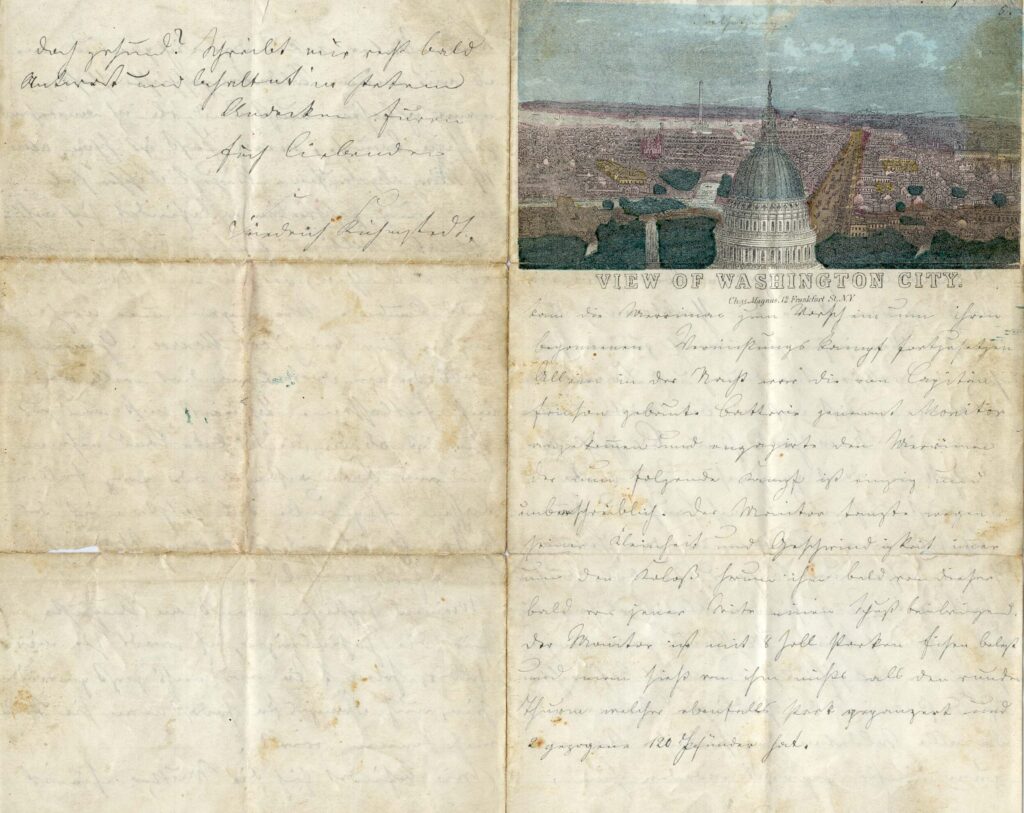 doch gesund? Schreibt mir recht bald
Antwort und behaltet in stetem
Andenken Euren
Euch liebenden
Friedrich Kühnstedt.
5.
VIEW OF WASHINGTON CITY.
Chas. Magnus, 12 Frankfort St. N.Y.
kam die Merrimac zum Vorschein um ihren
begonnenen Vernichtungs Kampf fortzusetzen
Allein in der Nacht war die von Capitän
Ericson gebaute Batterie genannt Monitor
angekommen und engagirte den Merrimac
der nun folgende Kampf ist einzig und
unbeschreiblich. Der Monitor tanzte wegen
seiner Kleinheit und Geschwindigkeit immer
um den Koloß herum ihm bald von dieser
bald von jener Seite einen Schuß beibringend
der Monitor ist mit 8 Zoll starken Eisen belegt
und man sieht von ihm nichts als den runden
Thurm welcher ebenfalls stark gepanzert und
2 gezogene 120 Pfünder hat.